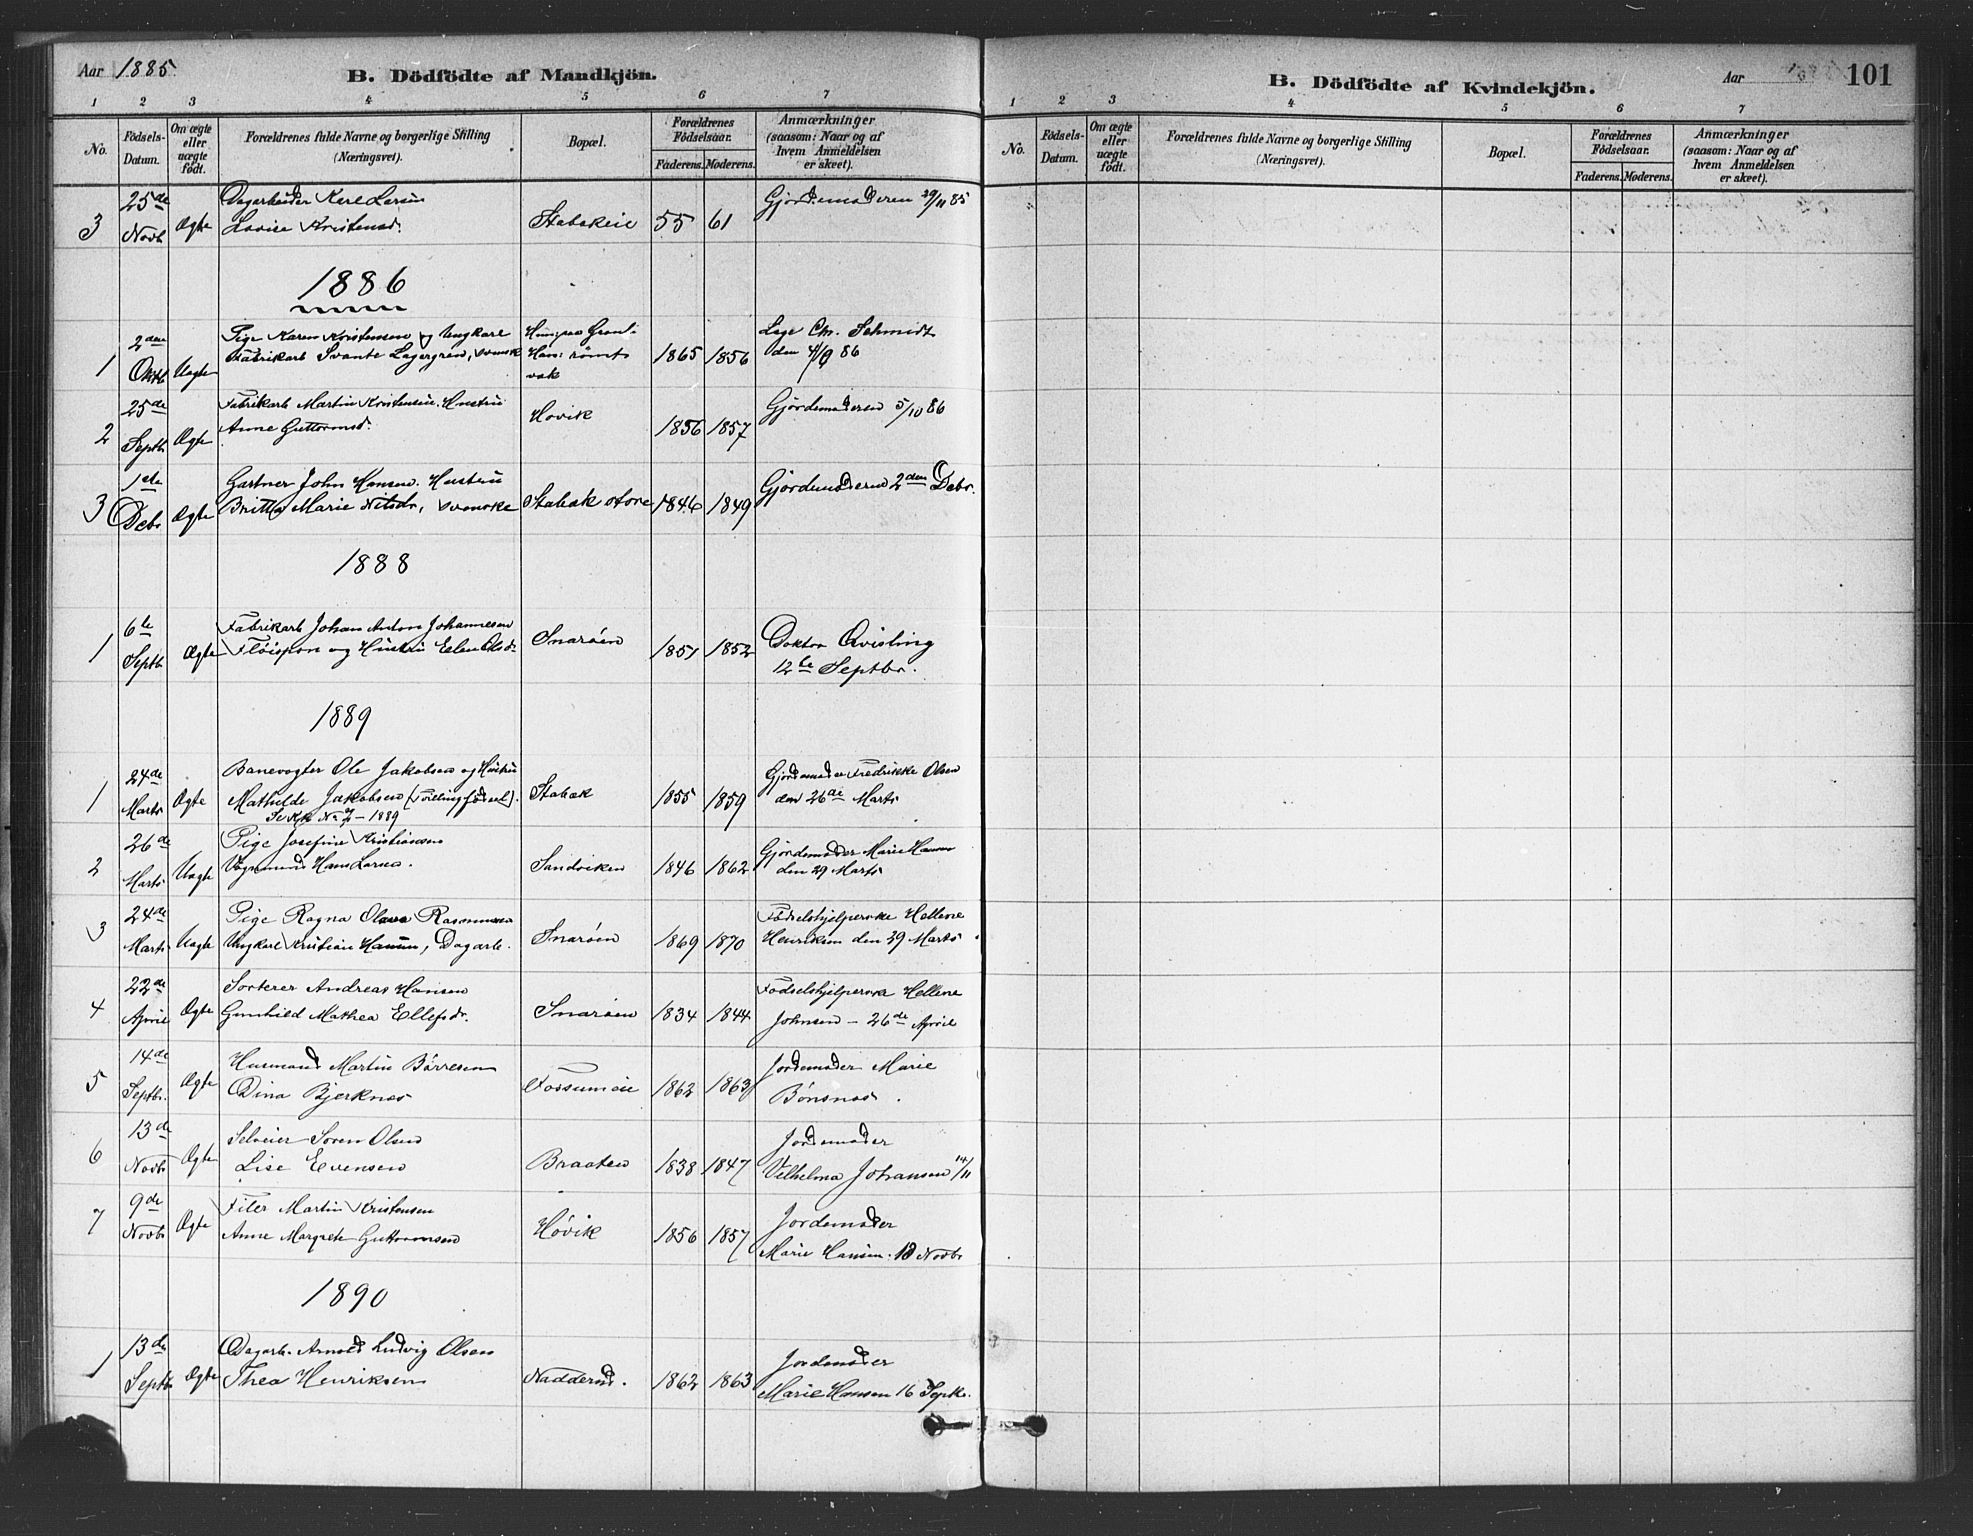 Aar 1885
B. Dödfödte af Mandkjön.
1 2 3 4 5 6 7
No.
Födsels-Datum.
Om ægte eller uægte födt.
Forældrenes fulde Navne og borgerlige Stilling
(Næringsvei).
Bopæl.
Forældrenes Födselsaar.
Faderens. Moderens.
Anmærkninger
(saasom: Naar og af
hvem Anmeldelsen
er skeet).
3 25de Novb Ægte
Dagarbeider Karl Larsen
Lovise Kristensd.
Stabekeie 55 61
Gjordemoderen 29/11 85
1886
1 2den Oktb Uægte
Pige Karen Kristensen og Ungkarl
Fabrikarb Svante Lagergren, svensk
1865 1856
Læge Chr. Schmidt
den 4/9 86
2 25de Septb Ægte
Fabrikarb Martin Kristensen. Hustru
Anne Guttormsd.
Hovik 1856 1857
Gjordemoderen 5/10 86
3 1ste Debr Ægte
Gartner John Hansen. Hustru
Britta Marie Nilsdr, svenske
Stabæk store 1846 1849
Gjordemoderen 2den Debr.
1888
1 6te Septb Ægte
Fabrikarb Johan Anton Johannesen
Fløispon og Hustru Ellen Olsdr
Snarøen 1851 1852
Doktor Qvisling
12te Septbr.
1889
1 24de Marts Ægte
Banevogter Ole Jakobsen og Hustru
Mathilde Jakobsen (Tvillingfødsel).
1889
Stabæk 1855 1859
Gjordemoder Fredrikke Olsen
den 26de Marts
2 26de Marts Uægte
Pige Josefine Kristiansen
Hans Larsen.
Sandviken 1846 1862
Gjordemoder Marie Hansen
den 29 Marts
3 24de Marts Uægte
Pige Ragna Olava Rasmussen
Ungkarl Kristian Hansen, Dagarb.
Snarøen 1869 1870
Fødselshjelperske Hellene
Henriksen den 29 Marts
4 22de April Ægte
Sorterer Andreas Hansen
Gunhild Mathea Ellefsdr.
Snarøen 1834 1844
Fødselshjelperske Hellene
Johnsen – 26de April
5 14de Septbr. Ægte
Husmand Martin Børresen
Dina Bjerknes
Fossumeie 1862 1863
Jordemoder Marie
Bönsnæs.
6 13de Novb Ægte
Selveier Søren Olsen
Lise Evensen
Braaten 1838 1847
Jordemoder
Vilhelma Johansen 14/11
7 9de Novb Ægte
Filer Martin Kristensen
Anne Margrete Guttormsen
Høvik 1856 1857
Jordemoder
Marie Hansen. 18 Novb
1890
1 13de Septb Ægte
Dagarb. Arnold Ludvig Olsen
Thea Henriksen
Nadderud. 1862 1863
Jordemoder
Marie Hansen 16 Septb.
B. Dödfödte af Kvindekjön.
Aar
101
1 2 3 4 5 6 7
No.
Födsels-Datum.
Om ægte eller uægte födt.
Forældrenes fulde Navne og borgerlige Stilling
(Næringsvei).
Bopæl.
Forældrenes Födselsaar.
Faderens. Moderens.
Anmærkninger
(saasom: Naar og af
hvem Anmeldelsen
er skeet).